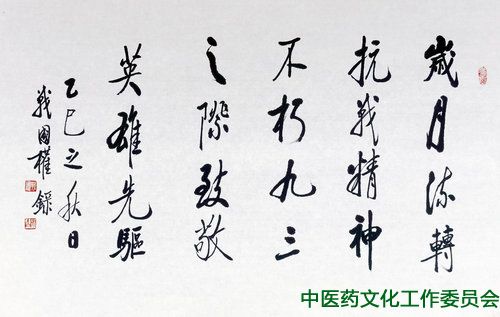 歲月流轉
抗戰精神
不朽九三
之際致敬
英雄先驅
乙巳之秋日
戰國權錄
中医药文化工作委员会